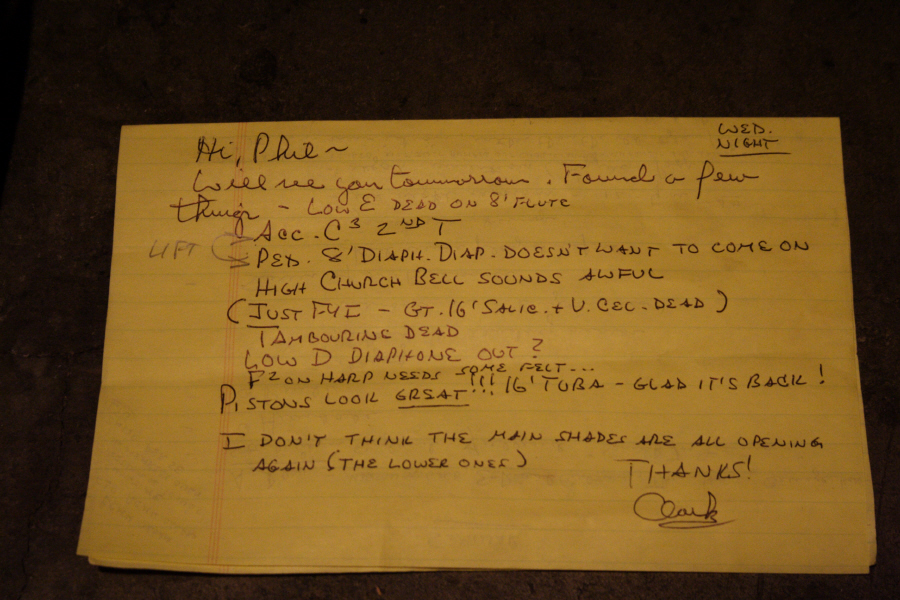 WED.
NIGHT
Hi, Phil ~
Will see you tommorrow. Found a few
things - LOW E DEAD ON 8' FLUTE
ACC. C3 2ND T
LIFT
PED. 8' DIAPH. DIAP. DOESN'T WANT TO COME ON
HIGH CHURCH BELL SOUNDS AWFUL
(JUST FYI - GT. 16' SALIC. + V. CEL. DEAD)
TAMBOURINE DEAD
LOW D DIAPHONE OUT?
F2 ON HARP NEEDS SOME FELT...
PISTONS LOOK GREAT!!! 16' TUBA - GLAD IT'S BACK!
I DON'T THINK THE MAIN SHADES ARE ALL OPENING
AGAIN (THE LOWER ONES)
THANKS!
Clark